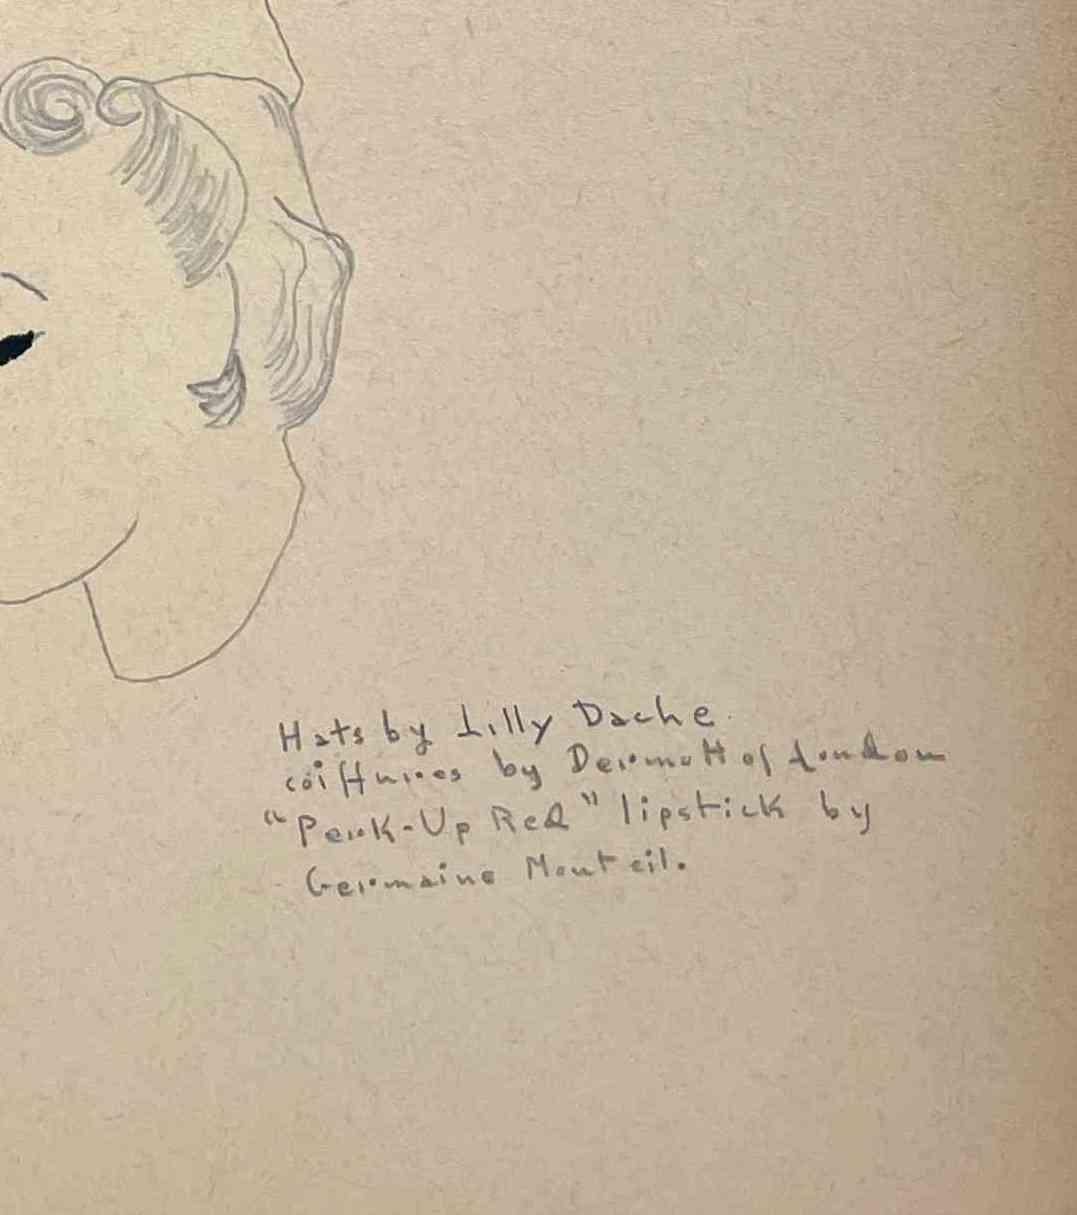 Hats by Lilly Dache.
coiffures by Dermott of London
"Perk-Up Red" lipstick by
Germaine Monteil.